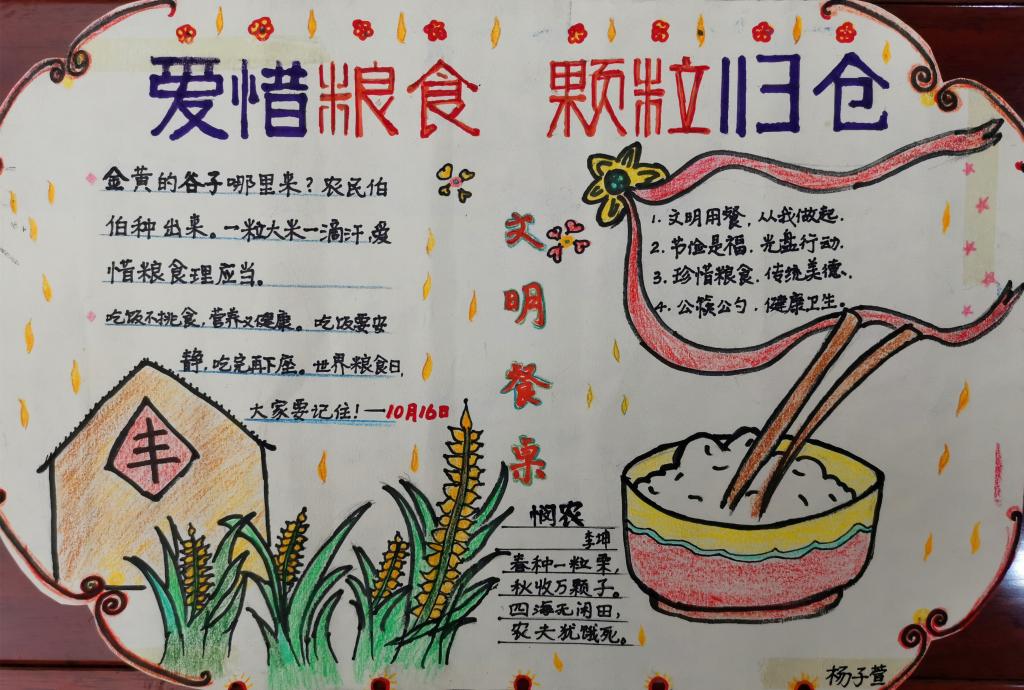 爱惜粮食 颗粒归仓
金黄的谷子哪里来？农民伯
伯种出来。一粒大米一滴汗，爱
惜粮食理应当。
吃饭不挑食，营养又健康。吃饭要安
静，吃完再下座。世界粮食日，
大家要记住！—10月16日
丰
文明餐桌
1. 文明用餐，从我做起.
2. 节俭是福. 光盘行动.
3. 珍惜粮食. 传统美德.
4. 公筷公勺. 健康卫生。
悯农
李坤
春种一粒栗，
秋收万颗子。
四海无闲田，
农夫犹饿死。
杨子萱